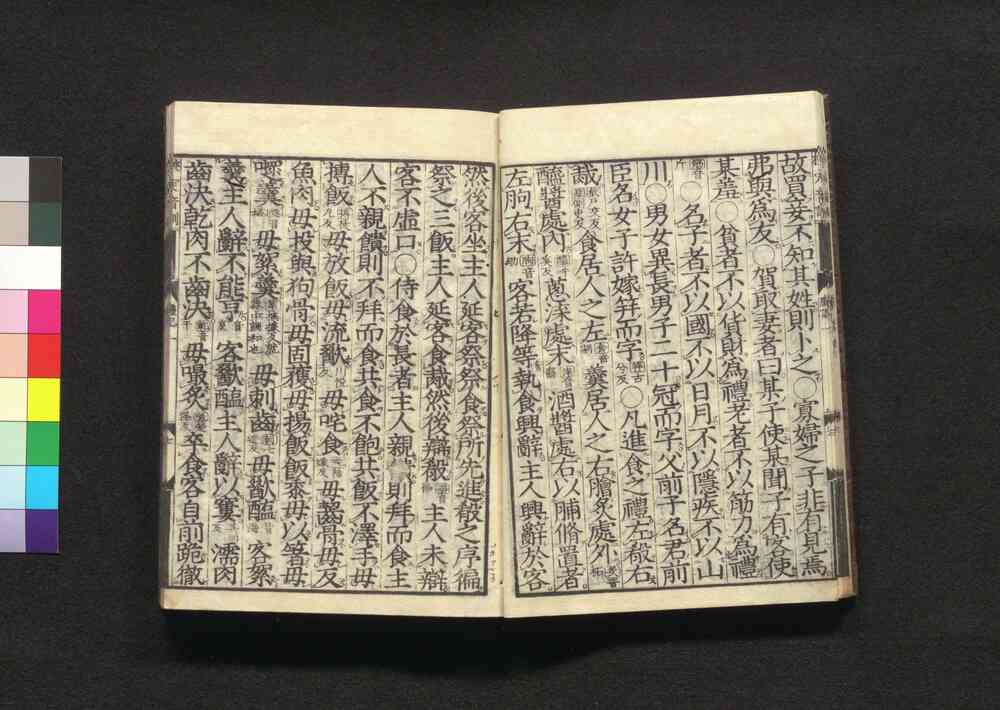 故買妾不知其姓則卜之○寡婦之子非有見焉
弗與為友○賀取妻者曰某子使某聞子有客使
某羞○貧者不以貨財為禮老者不以筋力為禮
○名子者不以國不以日月不以隱疾不以山
川○男女異長男子二十冠而字父前子名君前
臣名女子許嫁笄而字○凡進食之禮左殽右
胾食居人之左羹居人之右膾炙處外
醯醬處內蔥渫處末酒醬處右以脯脩置者
左朐右末客若降等執食興辭主人興辭於客
然後客坐主人延客祭祭食祭所先進殽之序徧
祭之三飯主人延客食胾然後辯殽主人未辯
客不虛口○侍食於長者主人親饋則拜而食主
人不親饋則不拜而食共食不飽共飯不澤手毋
摶飯毋放飯毋流歠毋咤食毋齧骨毋反
魚肉毋投與狗骨毋固獲毋揚飯飯黍毋以箸毋
嚺羹毋絮羹毋刺齒毋歠醢客絮
羹主人辭不能亨客歠醢主人辭以窶濡肉
齒決乾肉不齒決毋嘬炙卒食客自前跪徹